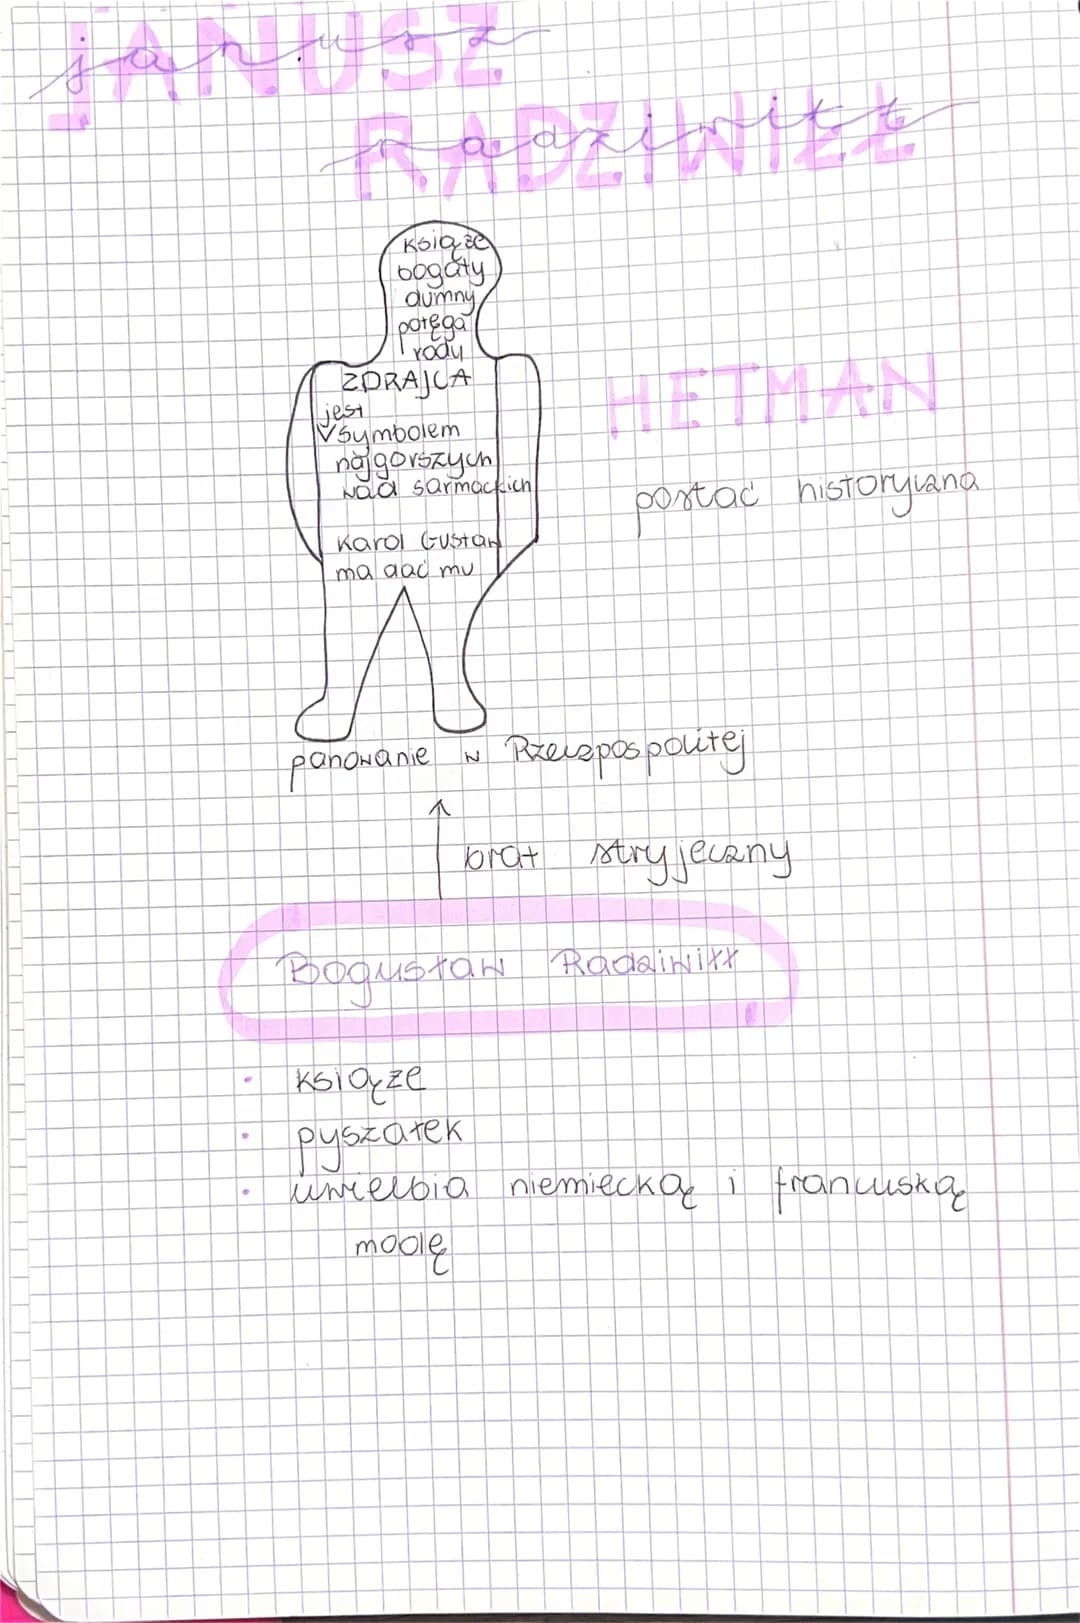 JANUSZ
janusz
RADZIWIŁŁ
radziwiłł
Książę
bogaty
dumny
potęga
rodu
ZDRAJCA
jest
symbolem
najgorszych
wad sarmackich
Karol Gustaw
ma dać mu
HETMAN
postać historyczna
panowanie w Rzeczpospolitej
brat stryjeczny
Bogusław Radziwiłł
• książę
• pyszałek
• uwielbia niemiecką i francuską
modę